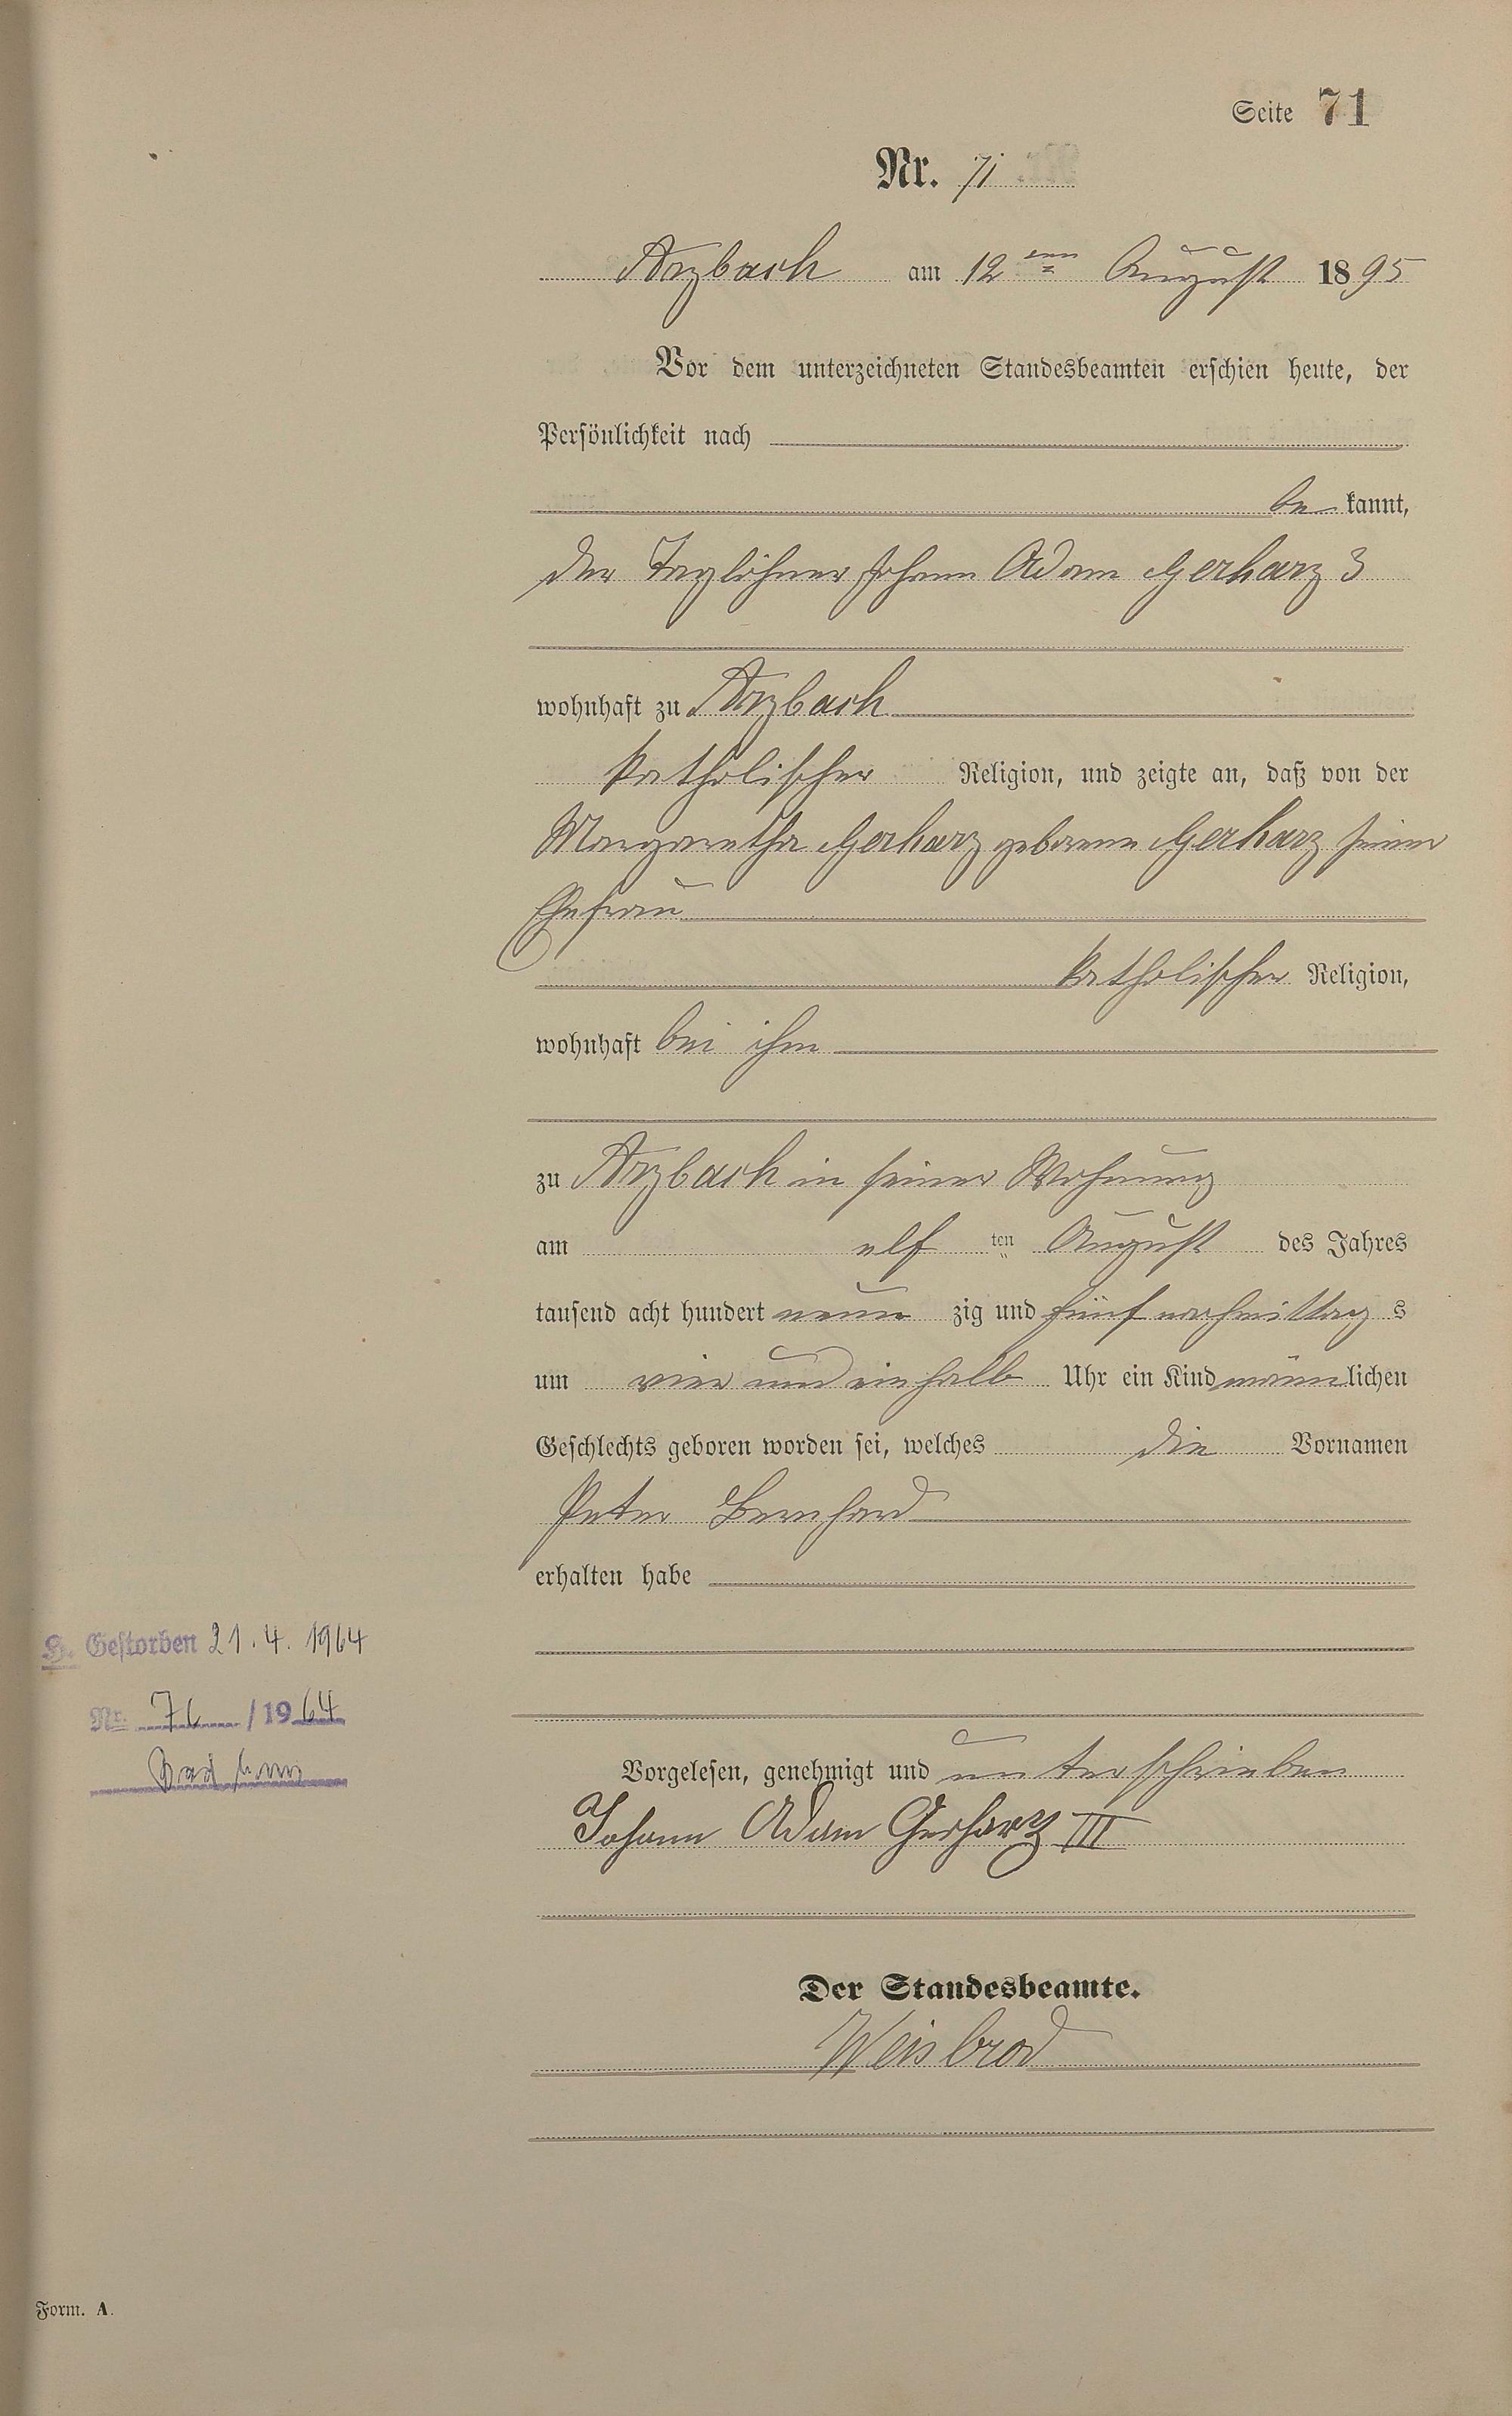 Seite 71
Nr. 71
Arzbach am 12ten August 1895
Vor dem unterzeichneten Standesbeamten erschien heute, der
Persönlichkeit nach
be kannt,
der Taglöhner Johann Adam Gerharz 3
wohnhaft zu Arzbach
katholischer Religion, und zeigte an, daß von der
Margaretha Gerharz geborene Gerharz seiner
Ehefrau
katholischer Religion,
wohnhaft bei ihm
zu Arzbach in seiner Wohnung
am elf ten August des Jahres
tausend acht hundert neun zig und fünf nachmittag s
um vier und ein halb Uhr ein Kind männ lichen
Geschlechts geboren worden sei, welches die Vornamen
Peter Bernhard
erhalten habe
H. Gestorben 21.4.1964
Nr. /1964
Bad Ems
Vorgelesen, genehmigt und unterschrieben
Johann Adam Gerharz III
Der Standesbeamte.
Weisbrod
Form. A.